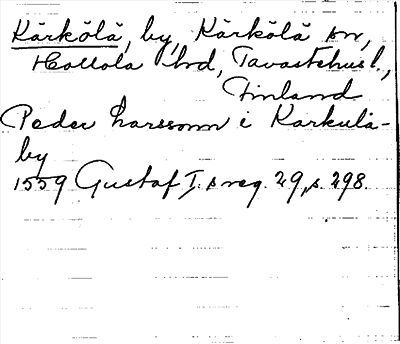 Kärkölä, by, Kärkölä sn,
Hollola hd, Tavastehusl.,
Finland
Peder Larssonn i Karkula-
by
1559 Gustaf I.s reg. 29, s. 298.